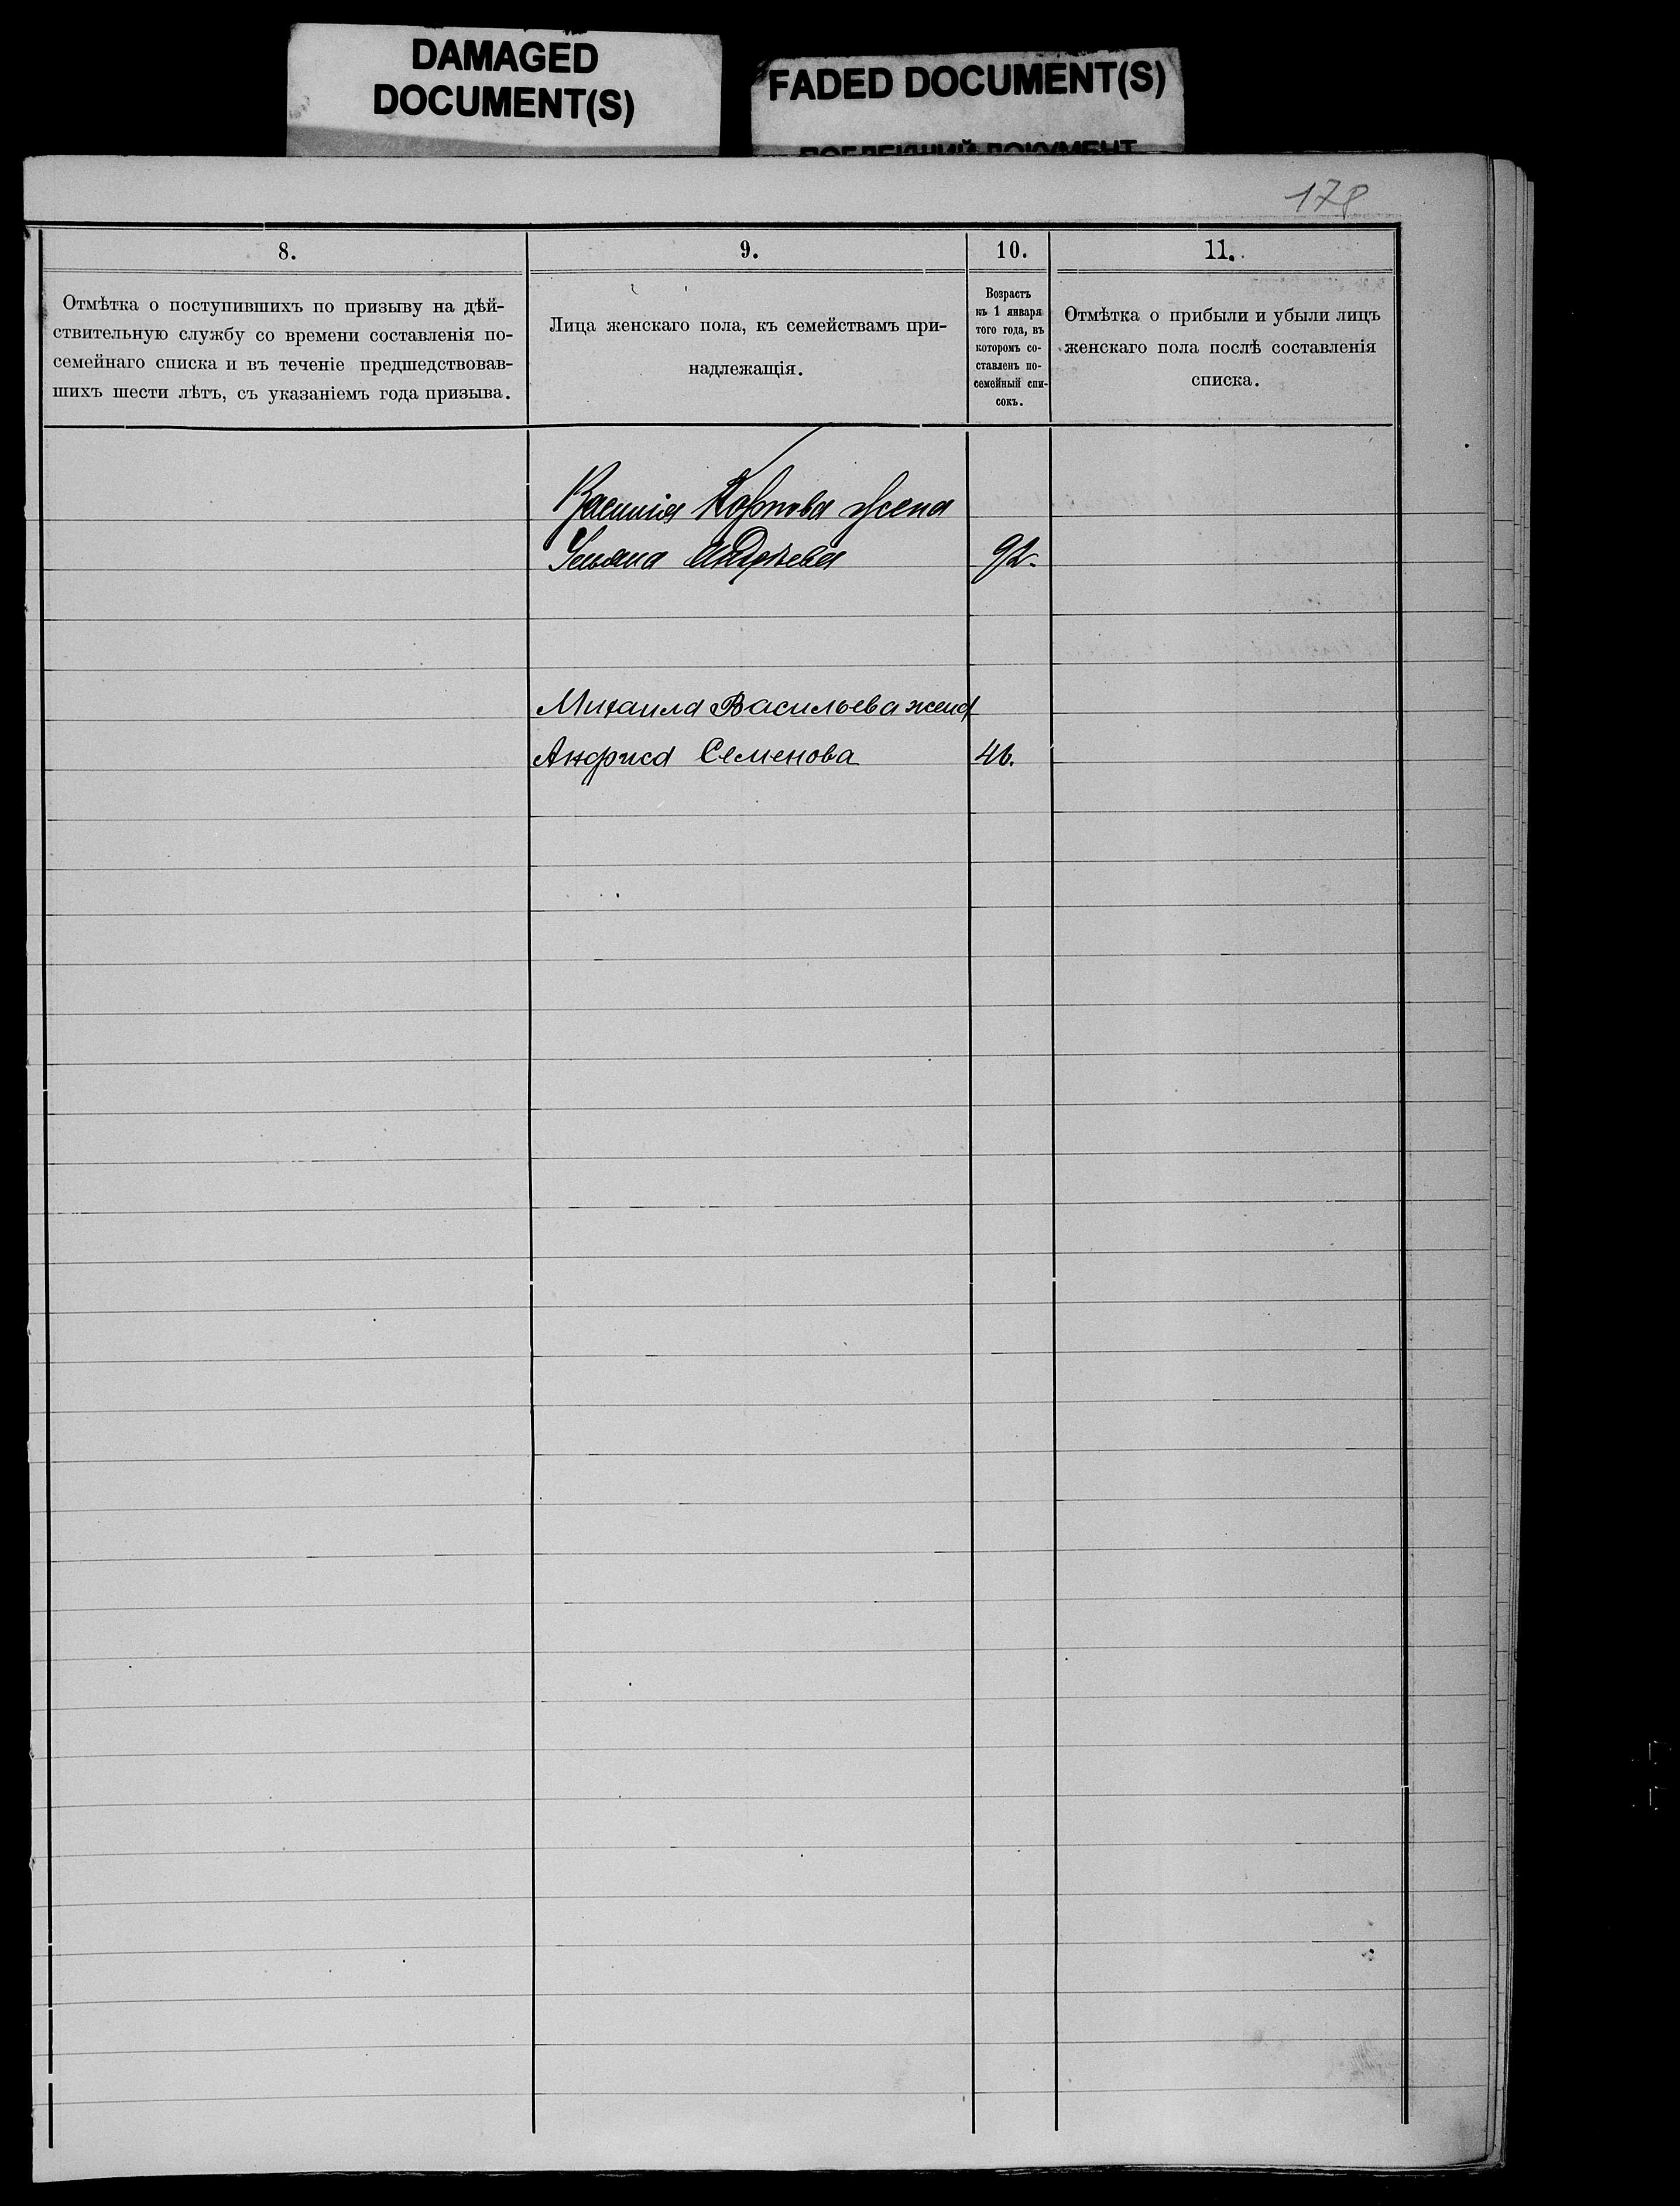 DAMAGED
DOCUMENT(S)
FADED DOCUMENT(S)
ПОБЛЕКШИЙ ДОКУМЕНТ
178
8.
9.
10.
11.
Отмѣтка о поступившихъ по призыву на дѣй-
ствительную службу со времени составленія по-
семейнаго списка и въ теченіе предшедствовав-
шихъ шести лѣтъ, съ указаніемъ года призыва.
Лица женскаго пола, къ семействамъ при-
надлежащія.
Возрастъ
къ 1 января
того года, въ
которомъ со-
ставленъ по-
семейный спи-
сокъ.
Отмѣтка о прибыли и убыли лицъ
женскаго пола послѣ составленія
списка.
Василія Карпова жена
Ульяна Андреева 92.
Михаила Васильева жена
Анфиса Семенова 46.